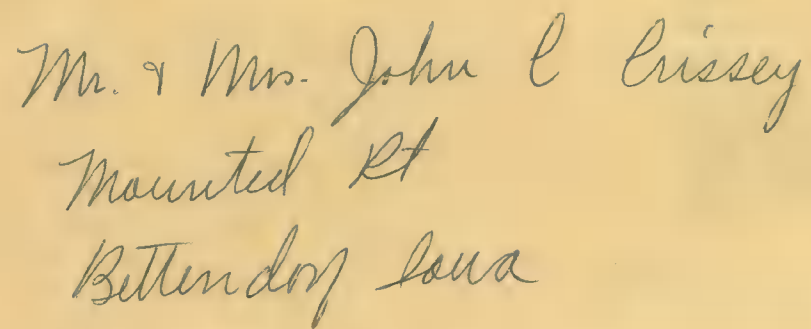 Mr. & Mrs. John C Crissey
Mounted Rt
Bettendorf Iowa